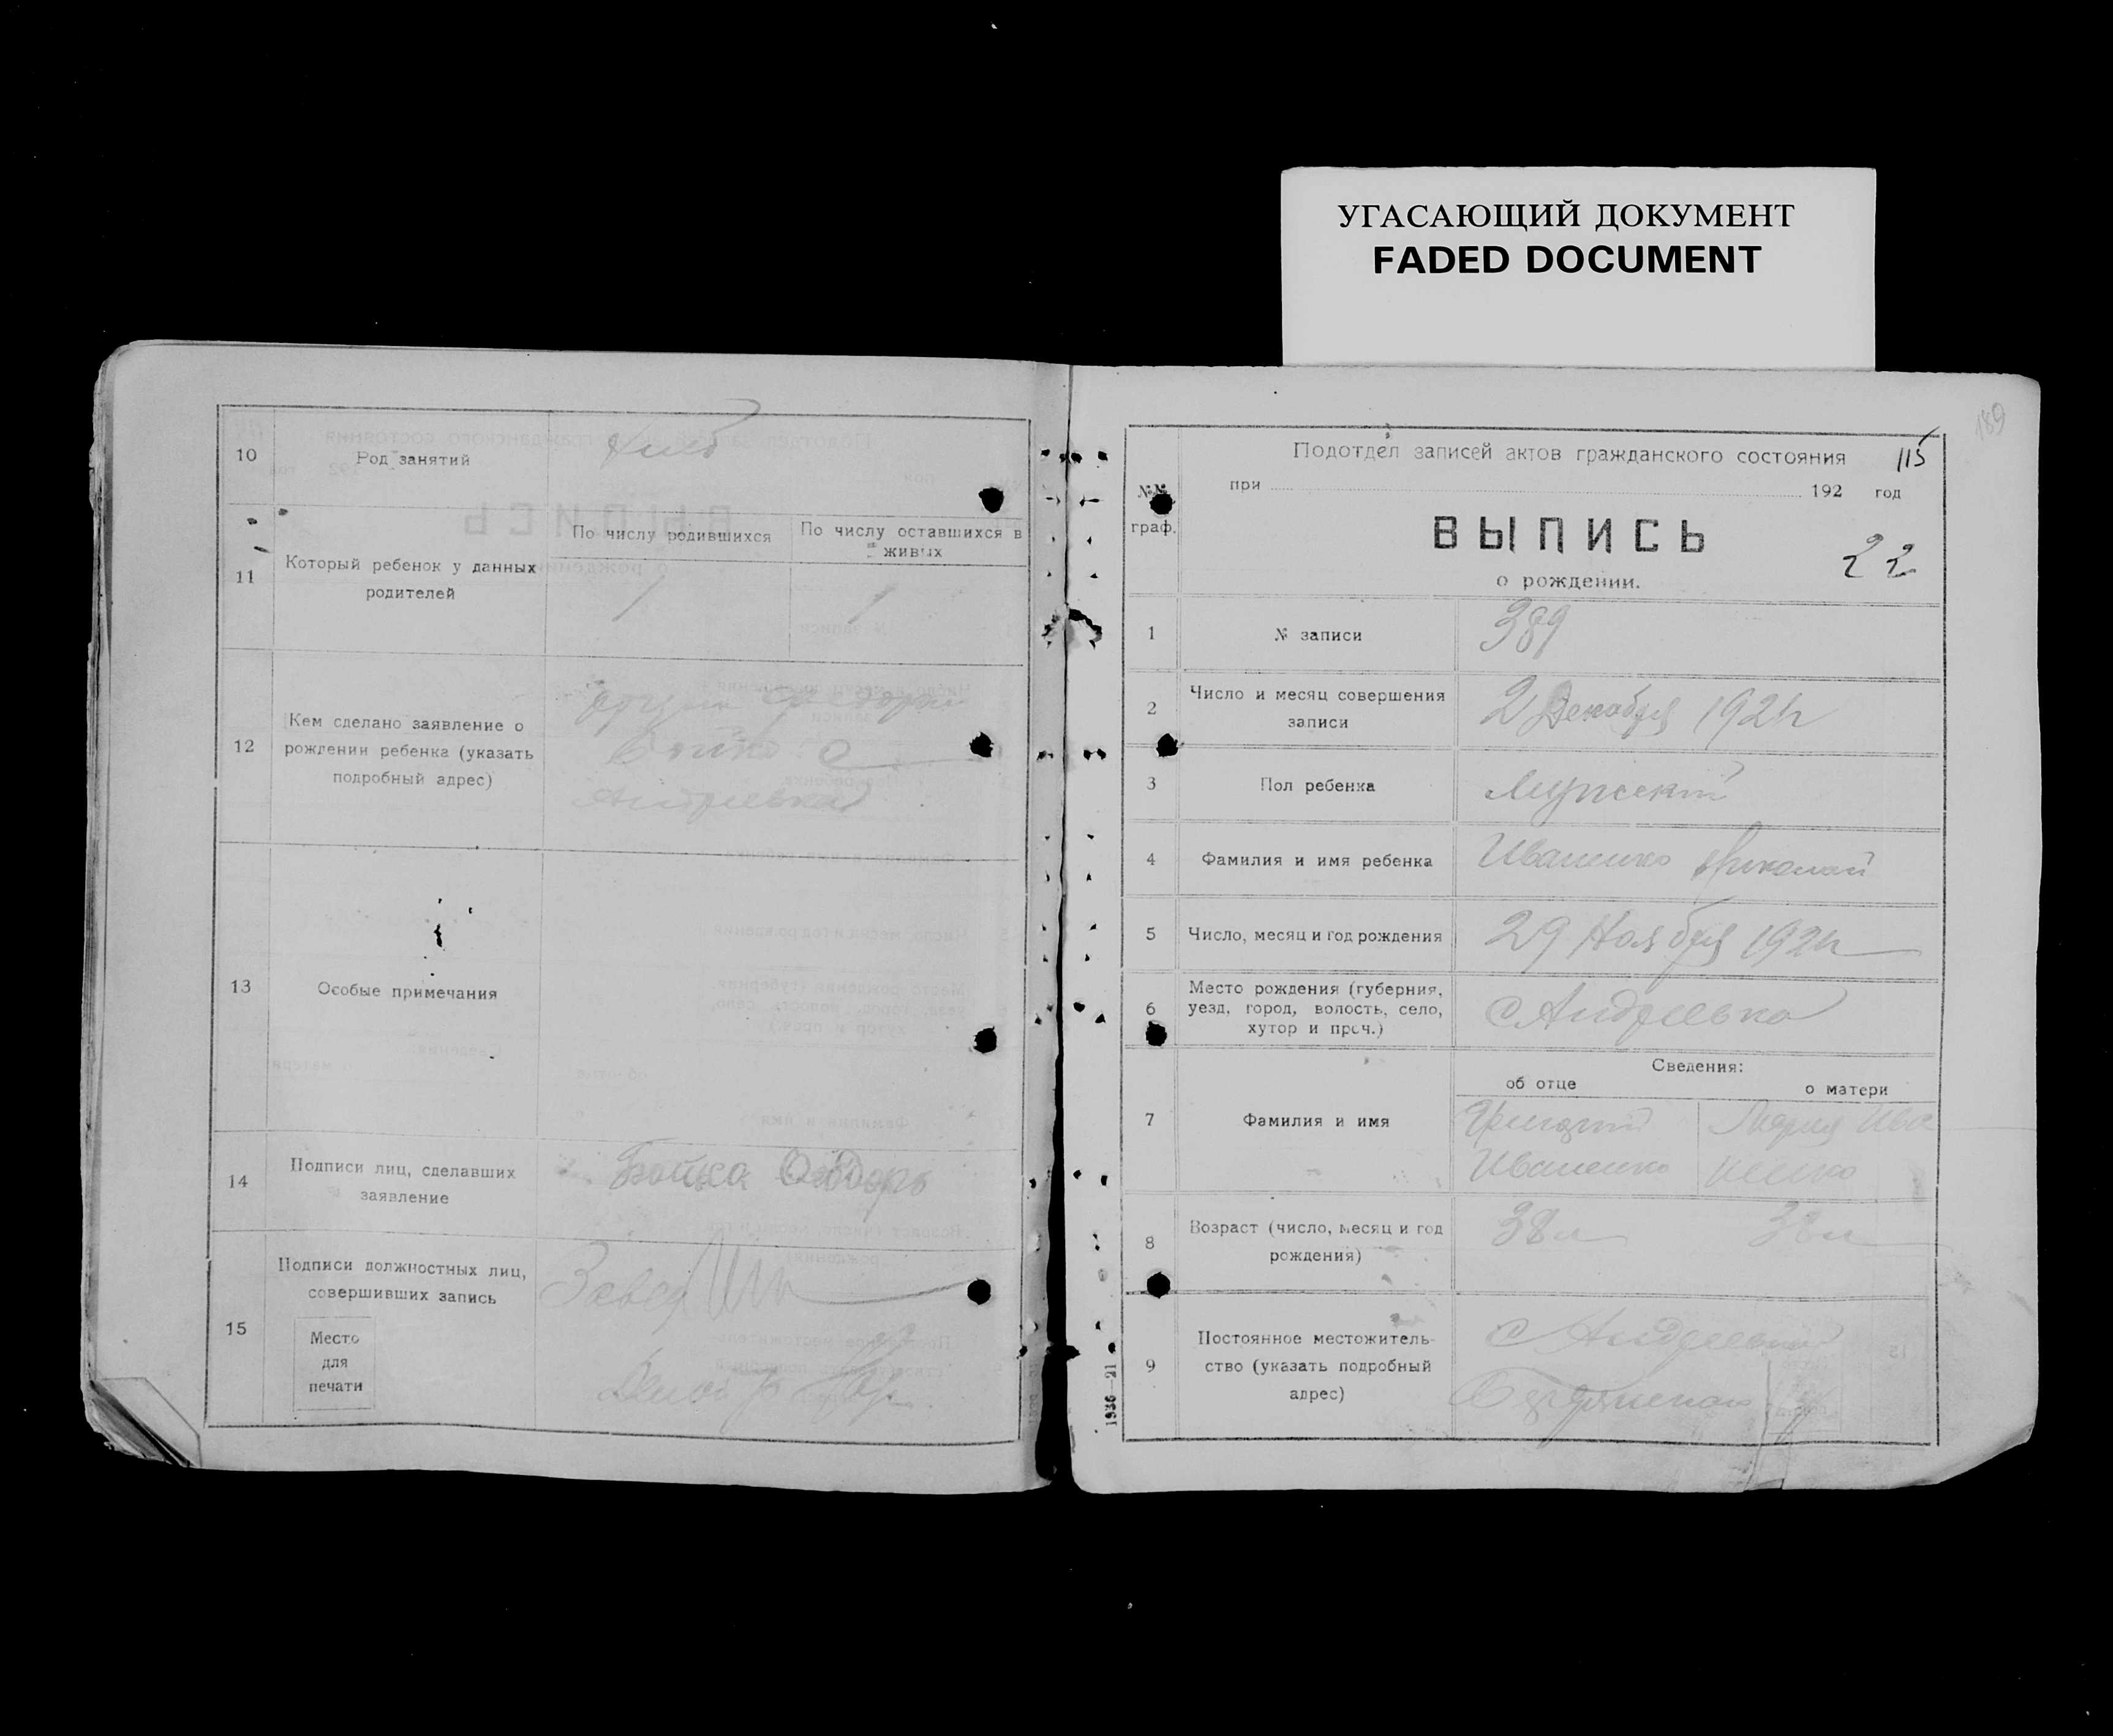 УГАСАЮЩИЙ ДОКУМЕНТ
FADED DOCUMENT
10
Род занятий
11
Который ребенок у данных
родителей
По числу родившихся
По числу оставшихся в
живых
1
1
12
Кем сделано заявление о
рождении ребенка (указать
подробный адрес)
Бойко с
Андреевка
13
Особые примечания
14
Подписи лиц, сделавших
заявление
Бойко
15
Подписи должностных лиц,
совершивших запись
Место
для
печати
Завед
189
Подотдел записей актов гражданского состояния
115
при 192 год
№№
граф.
ВЫПИСЬ
22
о рождении.
1
№ записи
389
2
Число и месяц совершения
записи
2 Декабря 192
3
Пол ребенка
Мужской
4
Фамилия и имя ребенка
Иваненко Николай
5
Число, месяц и год рождения
29 Ноября 192
6
Место рождения (губерния,
уезд, город, волость, село,
хутор и проч.)
с Андреевка
7
Фамилия и имя
Сведения:
об отце
о матери
Григорий
Иваненко
Мария Ива
ненко
8
Возраст (число, месяц и год
рождения)
38 л
38 л
9
Постоянное местожитель-
ство (указать подробный
адрес)
с Андреевка
1936—21